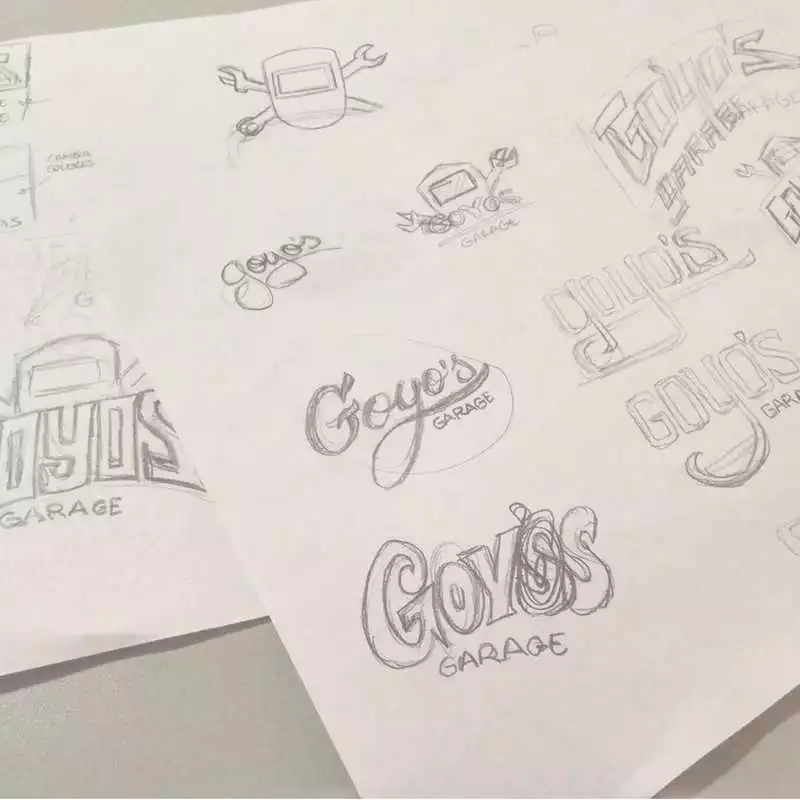 CAMBIA
COLORES
G
OYOS
GARAGE
GOYOS
GARAGE
goyo's
Goyo's
GARAGE
GOY'S
GARAGE
Goyo's
GARAGE
goyo's
GOYO'S
GARA
GO